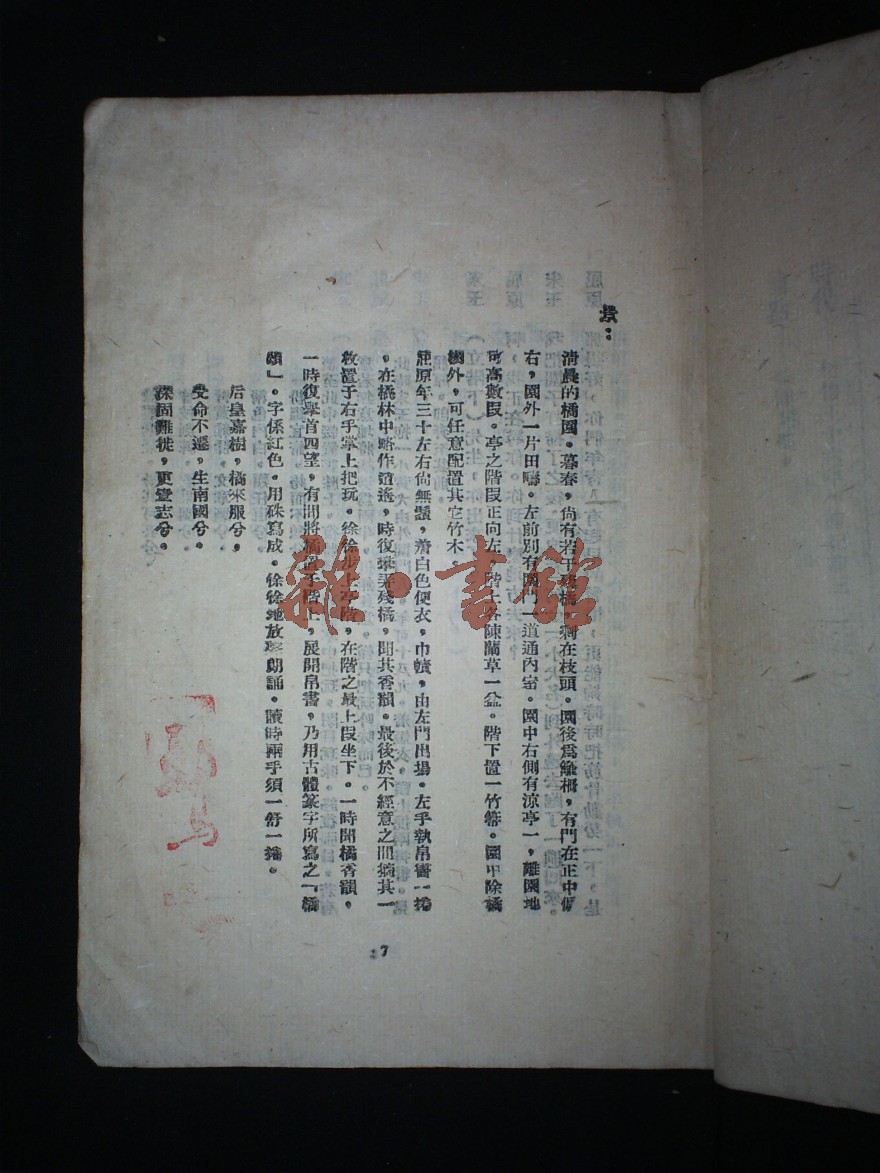 景：
清晨的橘園。暮春，尚有若干殘橘，剩在枝頭。園後爲籬柵，有門在正中偏
右，園外一片田疇。左前別有園門一道通內室。園中右側有涼亭一，離園地
可高數段。亭之階段正向左，階上各陳蘭草一盆。階下置一竹帚。園中除橘
樹外，可任意配置其它竹木。
屈原年三十左右尚無鬚，着白色便衣，巾幘，由左門出場。左手執帛書一捲
，在橘林中略作逍遙，時復攀弄殘橘，聞其香韻。最後於不經意之間摘其一
枚置于右手掌上把玩。徐徐步上亭階，在階之最上段坐下。一時聞橘香韻，
一時復舉首四望，有間將橘置于階上，展開帛書，乃用古體篆字所寫之「橘
頌」。字係紅色。用硃寫成。徐徐地放聲朗誦。讀時兩手須一舒一捲。
后皇嘉樹，橘徠服兮，
受命不遷，生南國兮。
深固難徙，更壹志兮。
：7
雜·書館